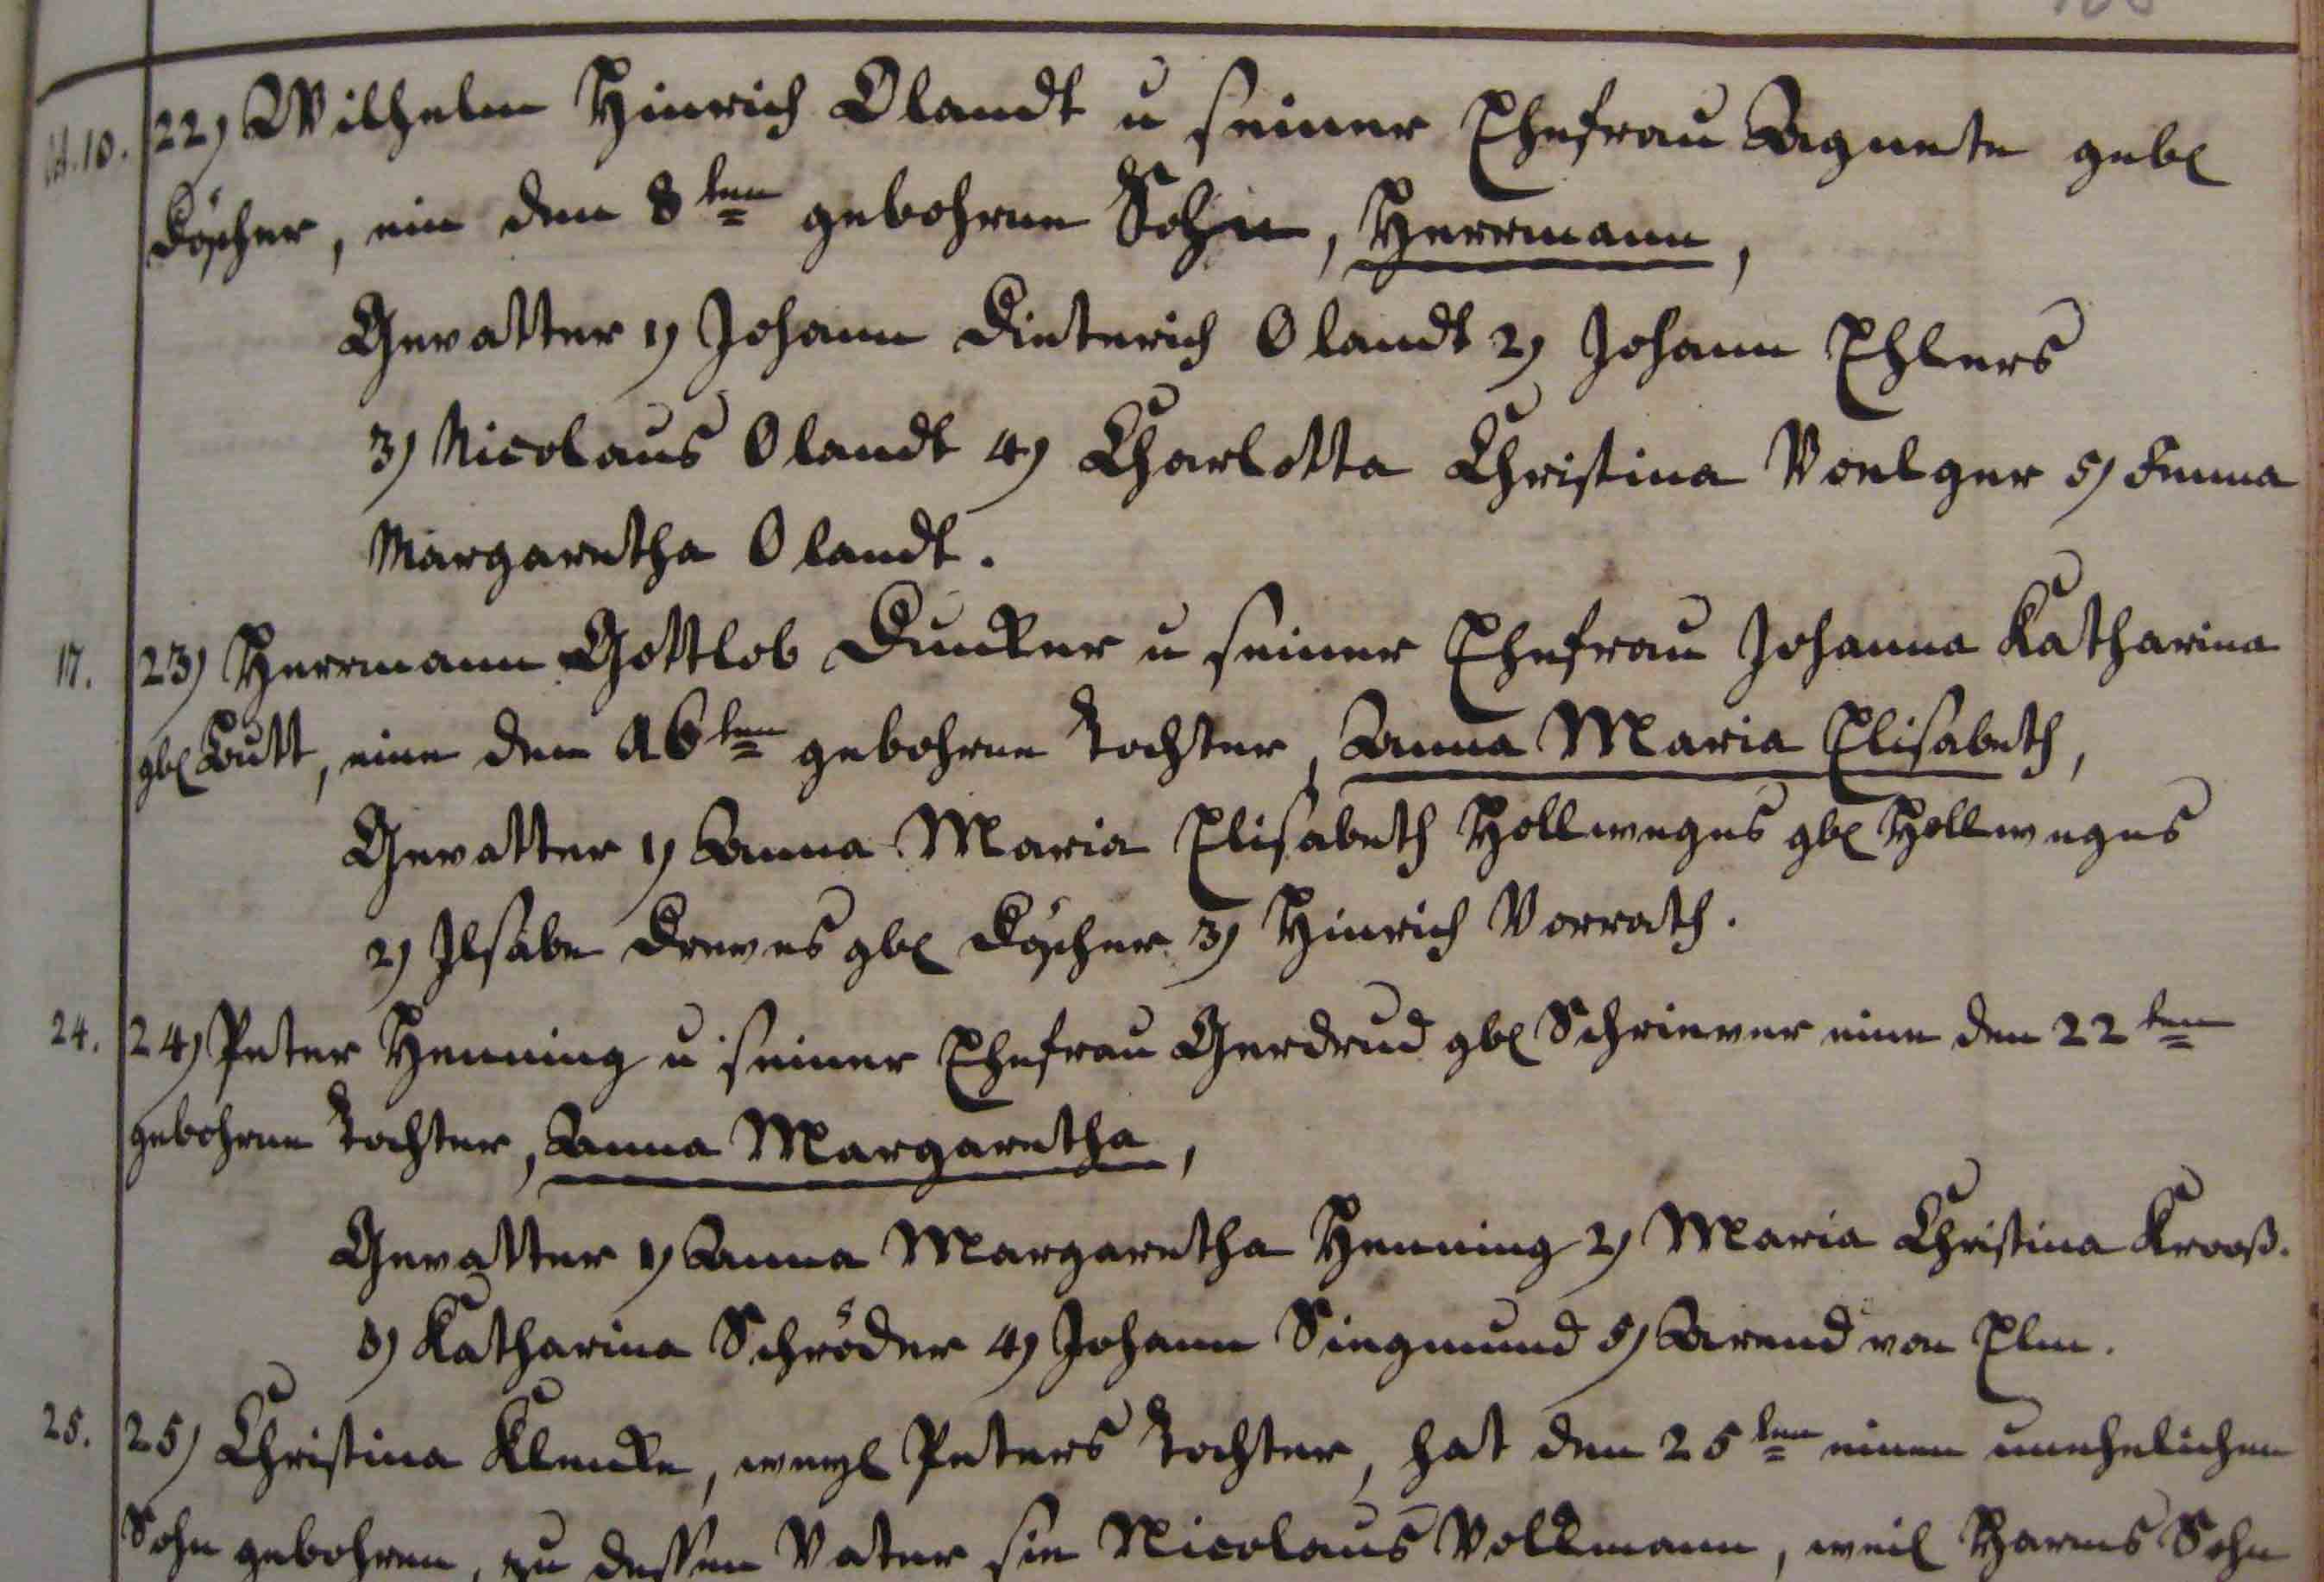 Oct. 10. 22) Wilhelm Hinrich Olandt u seiner Ehefrau Agnete geb.
Döscher, ein den 8ten gebohrne Sohn, Herrmann,
Gevatter 1) Johann Dieterich Olandt 2) Johann Ehlers
3) Nicolaus Olandt 4) Charlotta Christina Voelger 5)
Margaretha Olandt.
17. 23) Herrmann Gottlob Duncker u seiner Ehefrau Johanna Katharina
gb. Butt, eine den 16ten gebohrne Tochter, Anna Maria Elisabeth,
Gevatter 1) Anna Maria Elisabeth Hollweges gb. Hollweges
2) Ilsabe Dreves gb. Döscher 3) Hinrich Vorrath.
24. 24) Peter Henning u seiner Ehefrau Gerdrud gb. Schriever eine den 22ten
gebohrne Tochter, Anna Margaretha,
Gevatter 1) Anna Margaretha Henning 2) Maria Christina Krooß.
3) Katharina Schröder 4) Johann Siegmund 5) Arend von Elm.
25. 25) Christina Klencke, weyl Peters Tochter, hat den 25ten einen unehelichen
Sohn gebohren, zu dessen Vater sie Nicolaus Volkmann, weil Harms Sohn